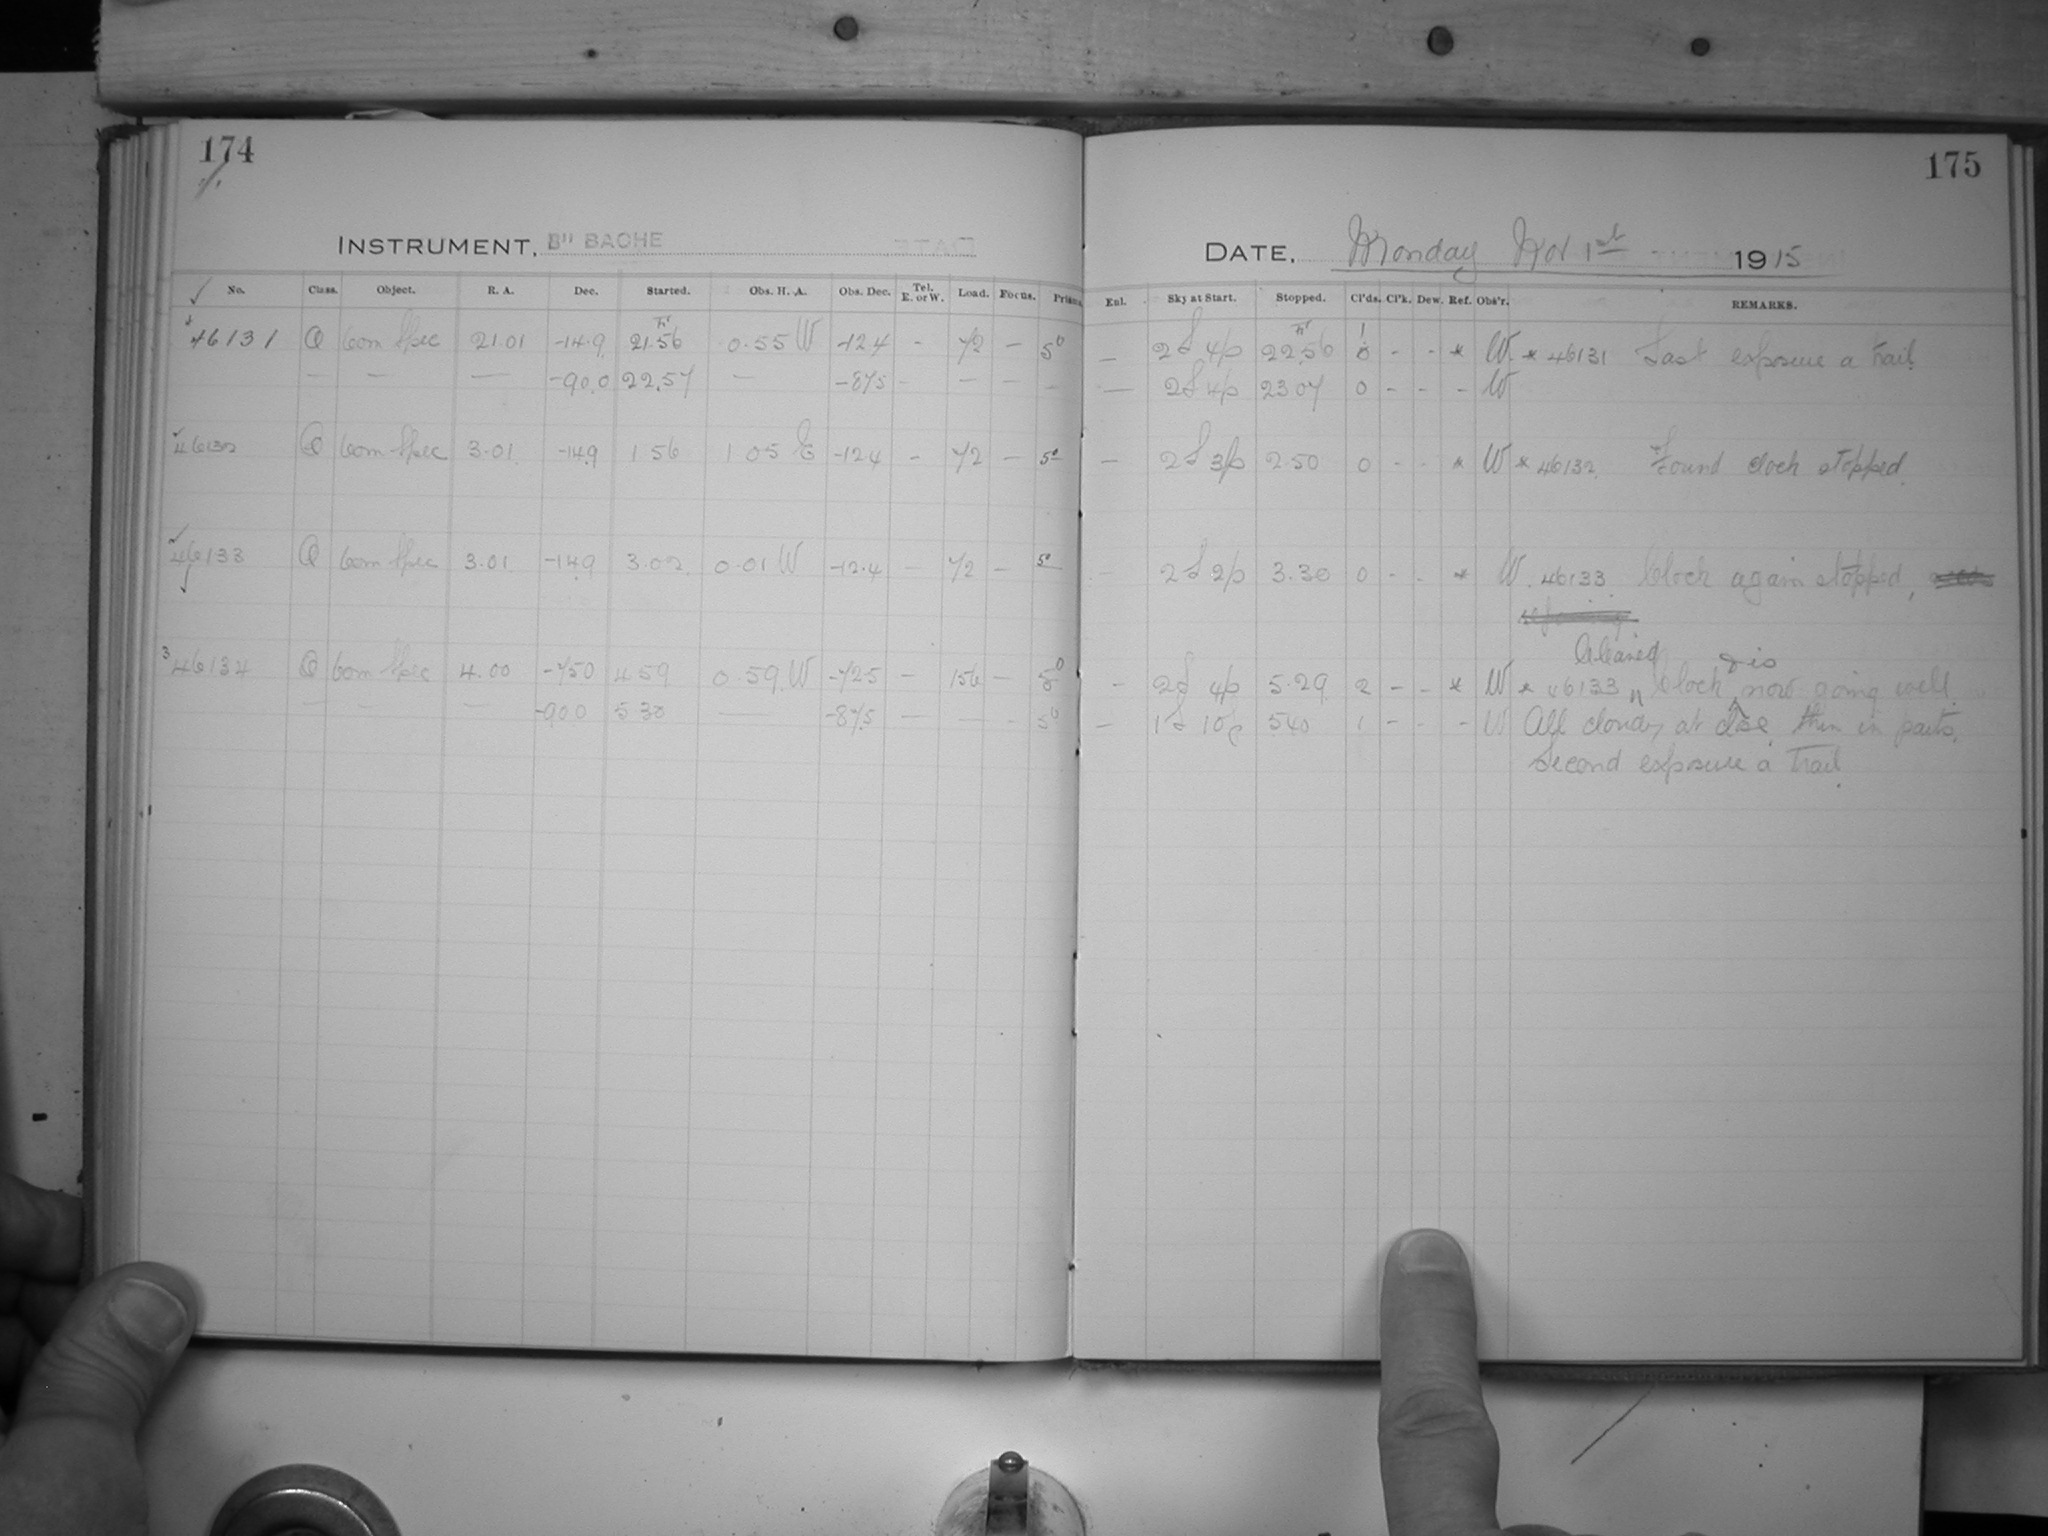 174
175
INSTRUMENT, 8" BACHE
DATE, Monday Nov 1st 1915
No. Class. Object. R. A. Dec. Started. Obs. H. A. Obs. Dec. Tel. E. or W. Load. Focus. Prism. Enl. Sky at Start. Stopped. Cl'ds. Cl'k. Dew. Ref. Obs'r. REMARKS.
46131 Q Com Spec 21.01 -14.9 21.56 0.55 W -12.4 - 72 - 5° - 2S 4p 22.56 - - * W * 46131 Last exposure a trail.
- - - -90.0 22.57 - -87.5 - - - - - 2S 4p 23.07 0 - - - W
46132 Q Com Spec 3.01 -14.9 1 56 1 05 E -12.4 - 72 - 5° - 2S 3p 2.50 0 - - * W * 46132. Found clock stopped.
46133 Q Com Spec 3.01 -14.9 3.02 0.01 W -12.4 - 72 - 5° - 2S 2p 3.30 0 - - * W. 46133. Clock again stopped,
Cleaned & is
46134 Q Com Spec 4.00 -75.0 4 59 0.59 W -72.5 - 156 - 5° - 2S 4p 5.29 2 - - * W * 46133 Clock now going well.
- - - -90.0 5.30 - -87.5 - - - 5° - 1S 10c 5 40 1 - - - W All cloudy at close, thin in parts.
Second exposure a trail.